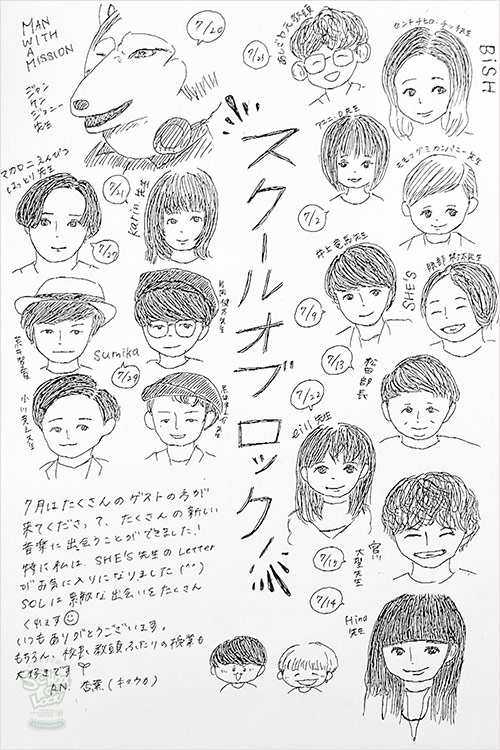 MAN
WITH
A
MISSION
ジャン
ケン
ジョニー
先生
7/20
7/23
あいざわ元教頭
セントチヒロ・チッチ先生
BiSH
アユニ・D先生
モモコグミカンパニー先生
7/2
マカロニえんぴつ
はっとり先生
7/27
7/21
karin.先生
スクールオブロック!
井上竜馬先生
7/9
SHE'S
服部栞汰先生
sumika
7/29
7/13
松田部長
7/22
eill先生
7/15
大型先生
7/14
Hina
先生
7月はたくさんのゲストの方が
来てくださって、たくさんの新しい
音楽に出会うことができました!
特に私は、SHE'S先生のLetter
がお気に入りになりました(^^)
SOLは素敵な出会いをたくさん
くれます
いつもありがとうございます。
もちろん、校長、教頭ふたりの授業も
大好きです
杏薫(キョウカ)